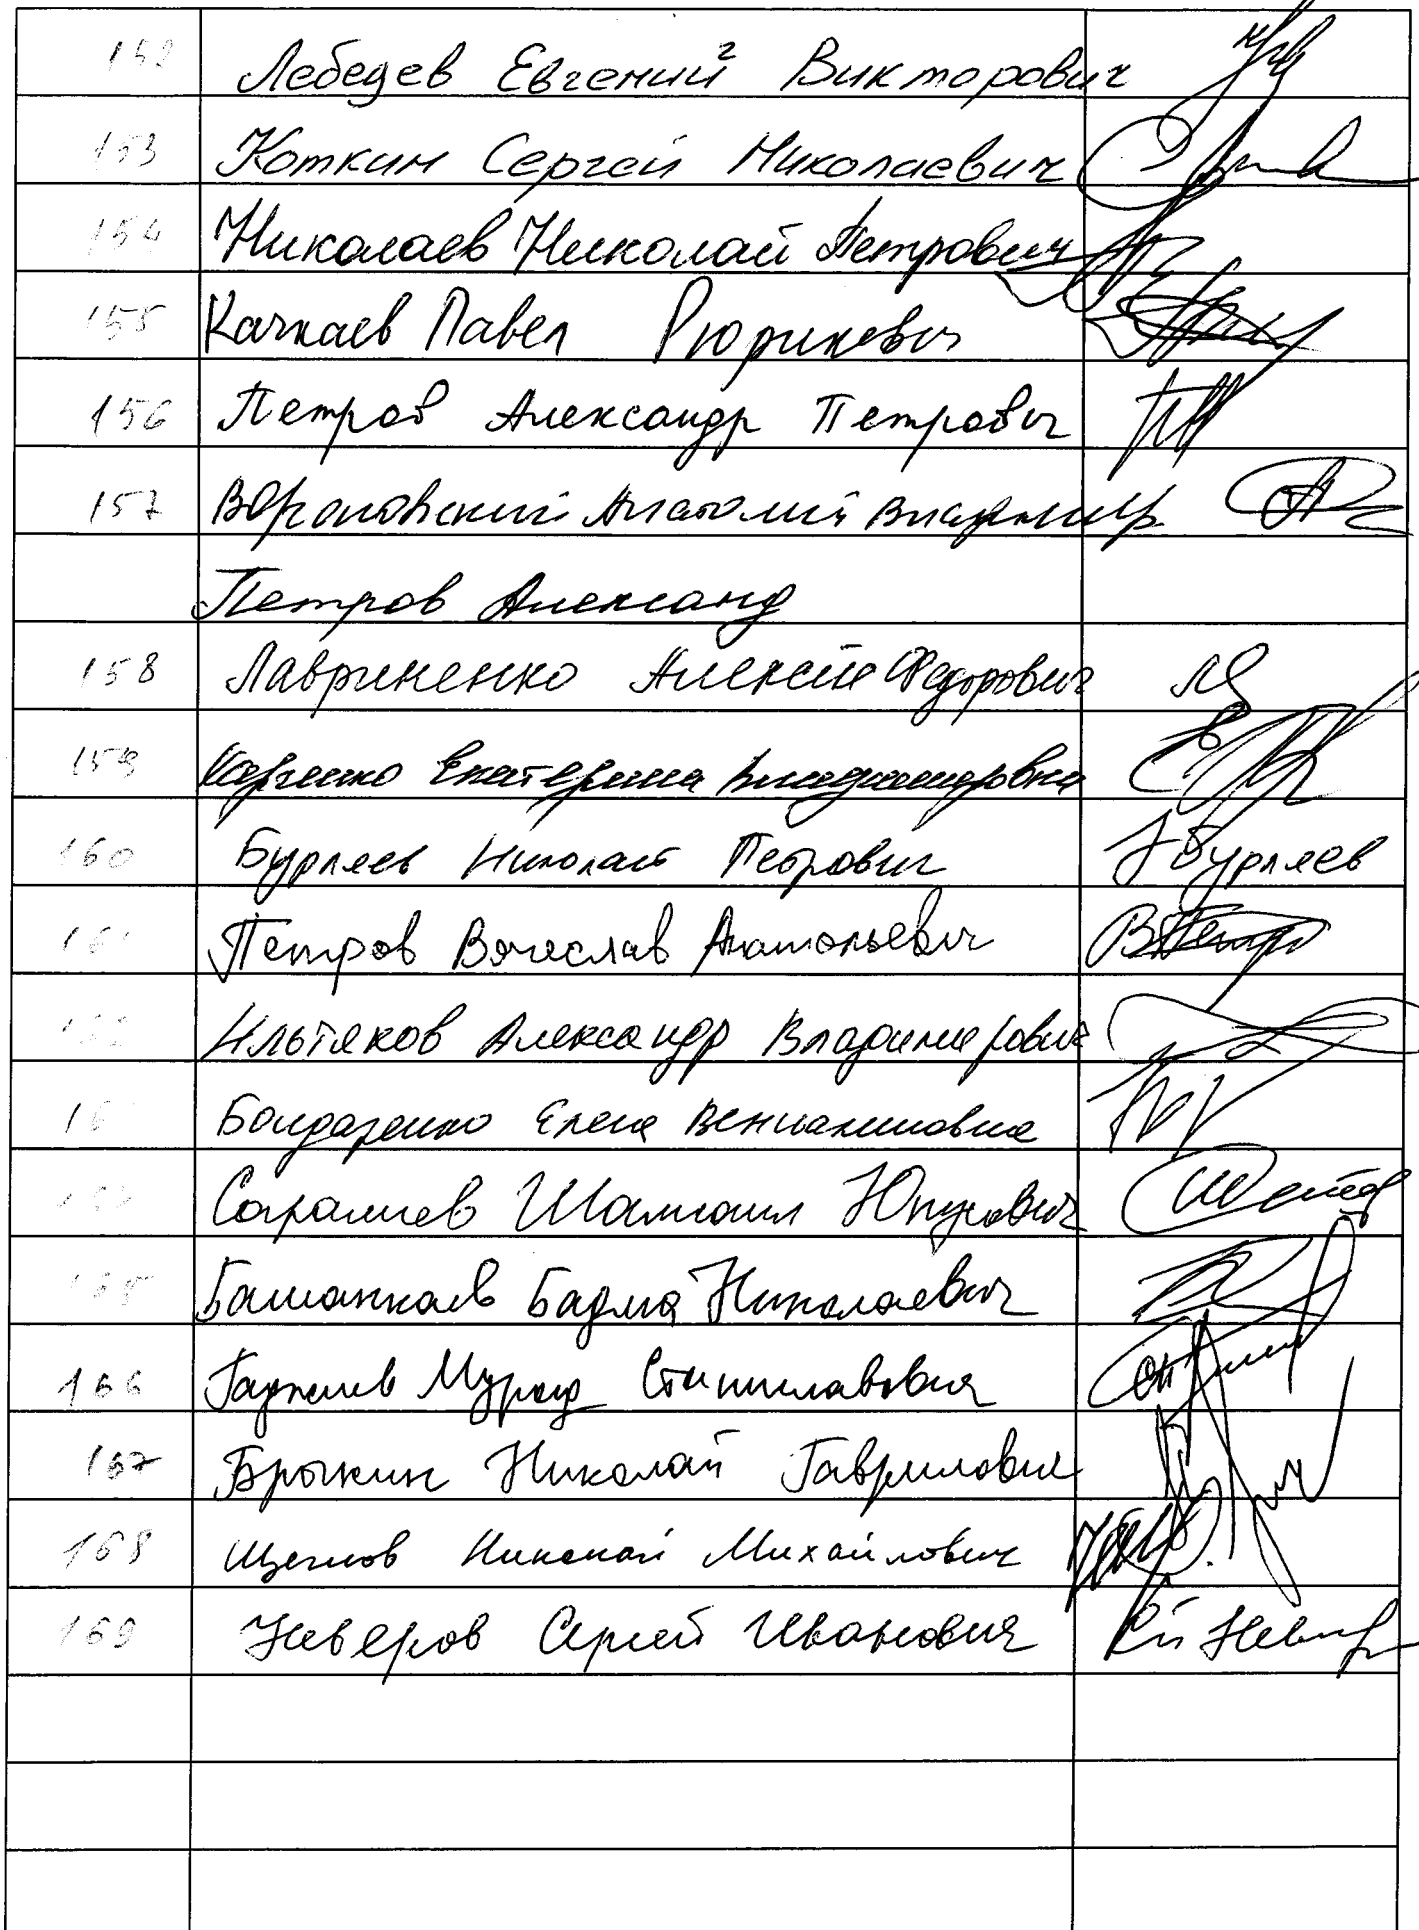 152 Лебедев Евгений Викторович
153 Коткин Сергей Николаевич
154 Николаев Николай Петрович
155 Качкаев Павел Рюрикович
156 Петров Александр Петрович
157 Вороновский Анатолий Владимир
Петров Александ
158 Лавриненко Алексей Федорович
159 Харченко Екатерина Владимировна
160 Бурляев Николай Петрович НБурляев
Петров Вячеслав Анатольевич
Ильтяков Александр Владимирович
Бондаренко Елена Вениаминовна
Саралиев Шамсаил Юнусович
165 Башанкаев Бадма Николаевич
166 Гаджиев Мурад Станиславович
167 Брыкин Николай Гаврилович
168 Щеглов Николай Михайлович
169 Неверов Сергей Иванович